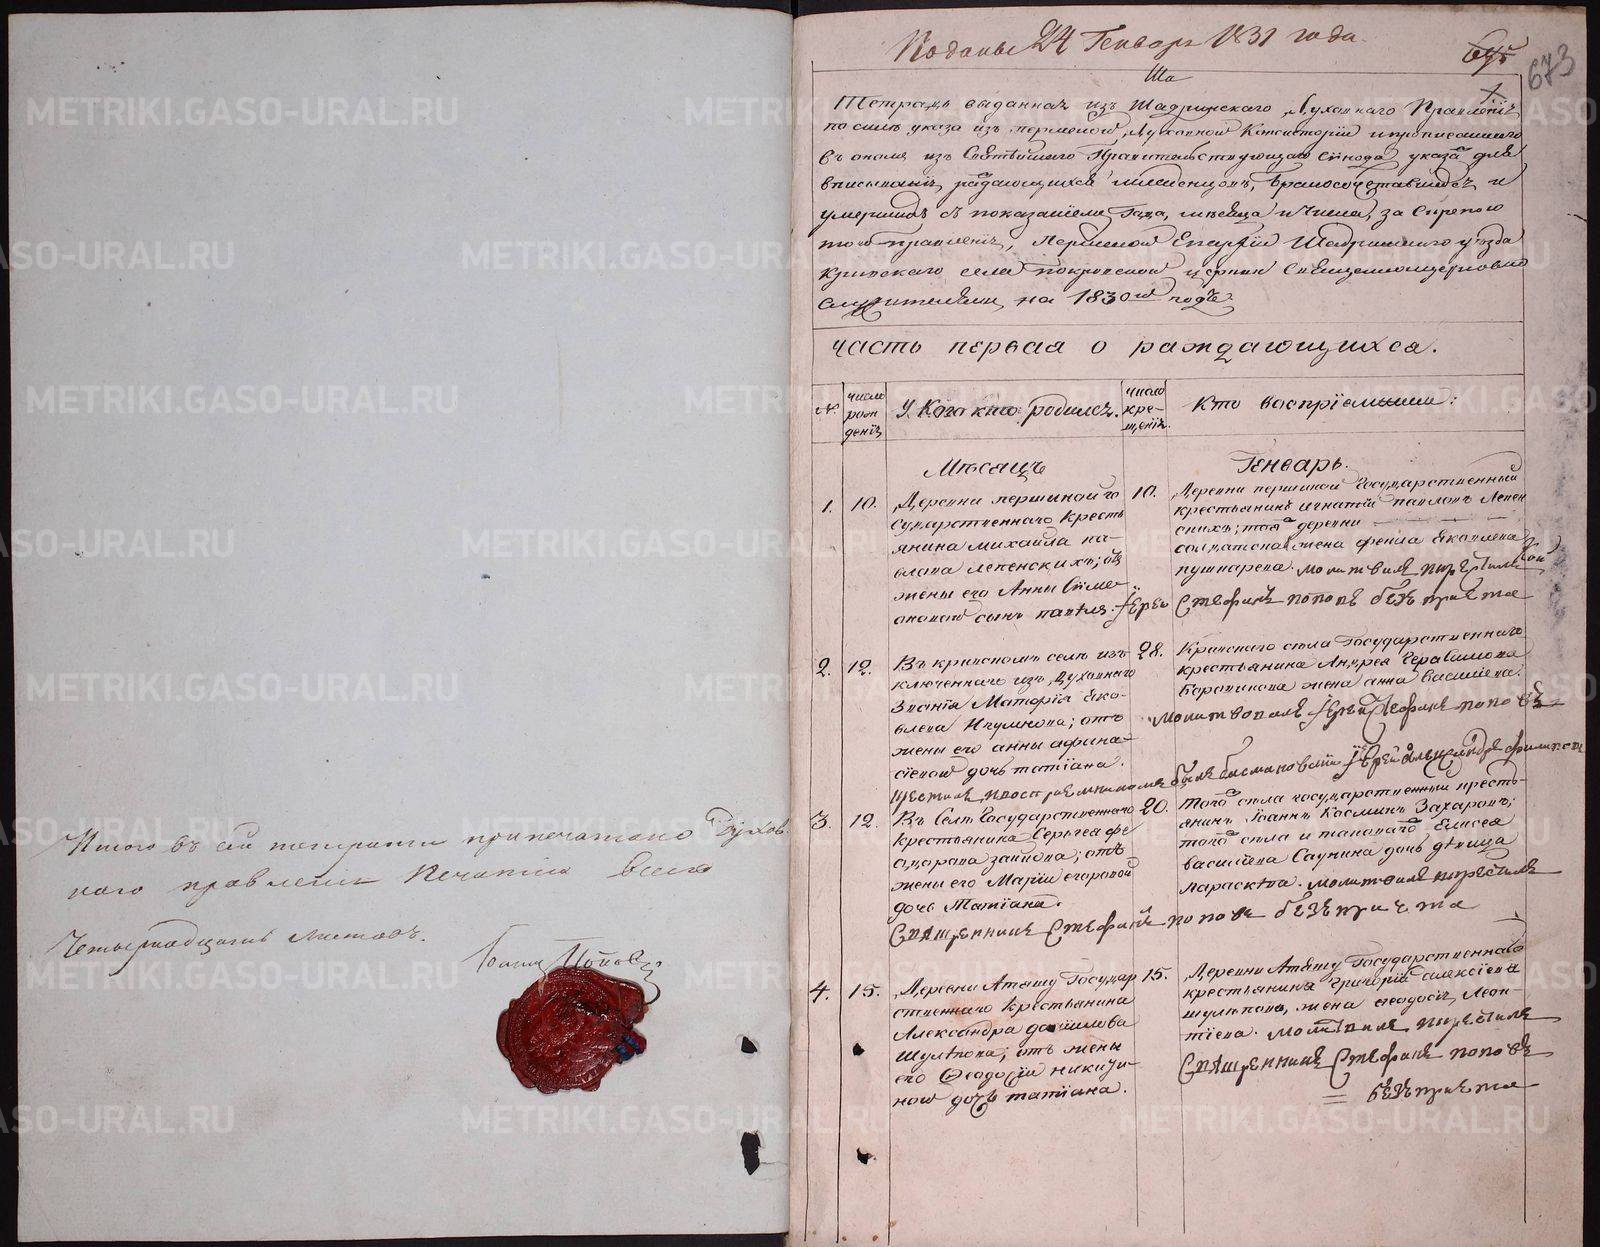 Итого въ сей тетради припечатано Духов-
наго правленiя Печатiю всего
Четырнадцать листовъ.
Поданы 24 Генваря 1831 года.
673
Тетрадь выданная изъ Шадринскаго Духовнаго Правленiя
по силѣ указа изъ пермской Духовной Консисторiи и прописаннаго
въ ономъ изъ Святѣйшаго Правительствующаго Сѵнода указа для
вписыванiя раждающихся младенцовъ, бракосочетавшихся и
умершихъ съ показанiемъ Года, мѣсяца и Числа, за Скрепою
того правленiя, Пермской Епархiи Шадринскаго уѣзда
Кривскаго села покровской церкви Священноцерковно
служителями, на 1830й годъ.
часть первая о раждающихся.
№
число
рож
денiя
У Кого кто родился.
число
кре-
щенiя.
Кто воспрiемники:
Мѣсяцъ Генварь.
1. 10. Деревни першиной го
сударственнаго Кресть
янина михаила па-
влова лепенскихъ; отъ
жены его Анны Симе-
оновой сынъ павелъ.
10. Деревни першиной Государственный
крестьянинъ игнатiй павловъ Лепен
скихъ; тоя деревни
солдатская жена фекла Яковлева
пушкарева. молитвилъ и крестилъ
Iерей Стефанъ поповъ безъ причта
2. 12. Въ кривскомъ селѣ изъ
ключеннаго изъ Духовнаго
Званiя Матфiя Яко-
влева Наумова; отъ
жены его анны афана-
сiевой дочь татiана.
28. Кривскаго села Государственнаго
крестьянина Андрея Герасимова
Боровикова жена анна васильева.
молитвовалъ Iерей Стефанъ поповъ
3. 12. Въ Селѣ Государственнаго
крестьянина Сергея фе
одорова заикова; отъ
жены его Марiи егоровой
дочь Татiана.
20. Того села государственный кресть-
янинъ Iоаннъ Космин Захаровъ;
того села и таковаго Елисея
васильева Саунина дочь дѣвица
параскева. молитвилъ и крестилъ
Священникъ Стефанъ поповъ безъ причта
4. 15. Деревни Атяшу Государ
ственнаго Крестьянина
Александра данилова
Шулѣпова; отъ жены
его Феодосiи никити-
ной дочь татiана.
15. Деревни Атяшу Государственнаго
крестьянина Григорiя алексiева
шулѣпова, жена феодосiя Леон-
тiева. молитвилъ и крестилъ
Священникъ Стефанъ поповъ
безъ причта
METRIKI.GASO-URAL.RU